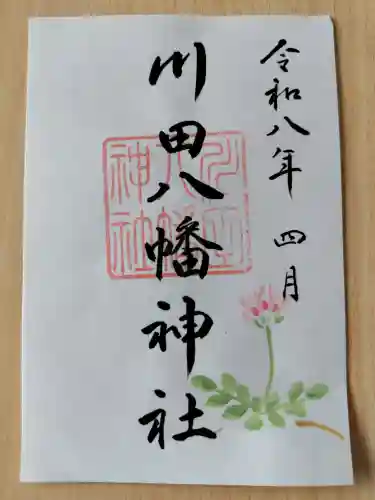 令和八年 四月
川田八幡神社
川田八幡神社